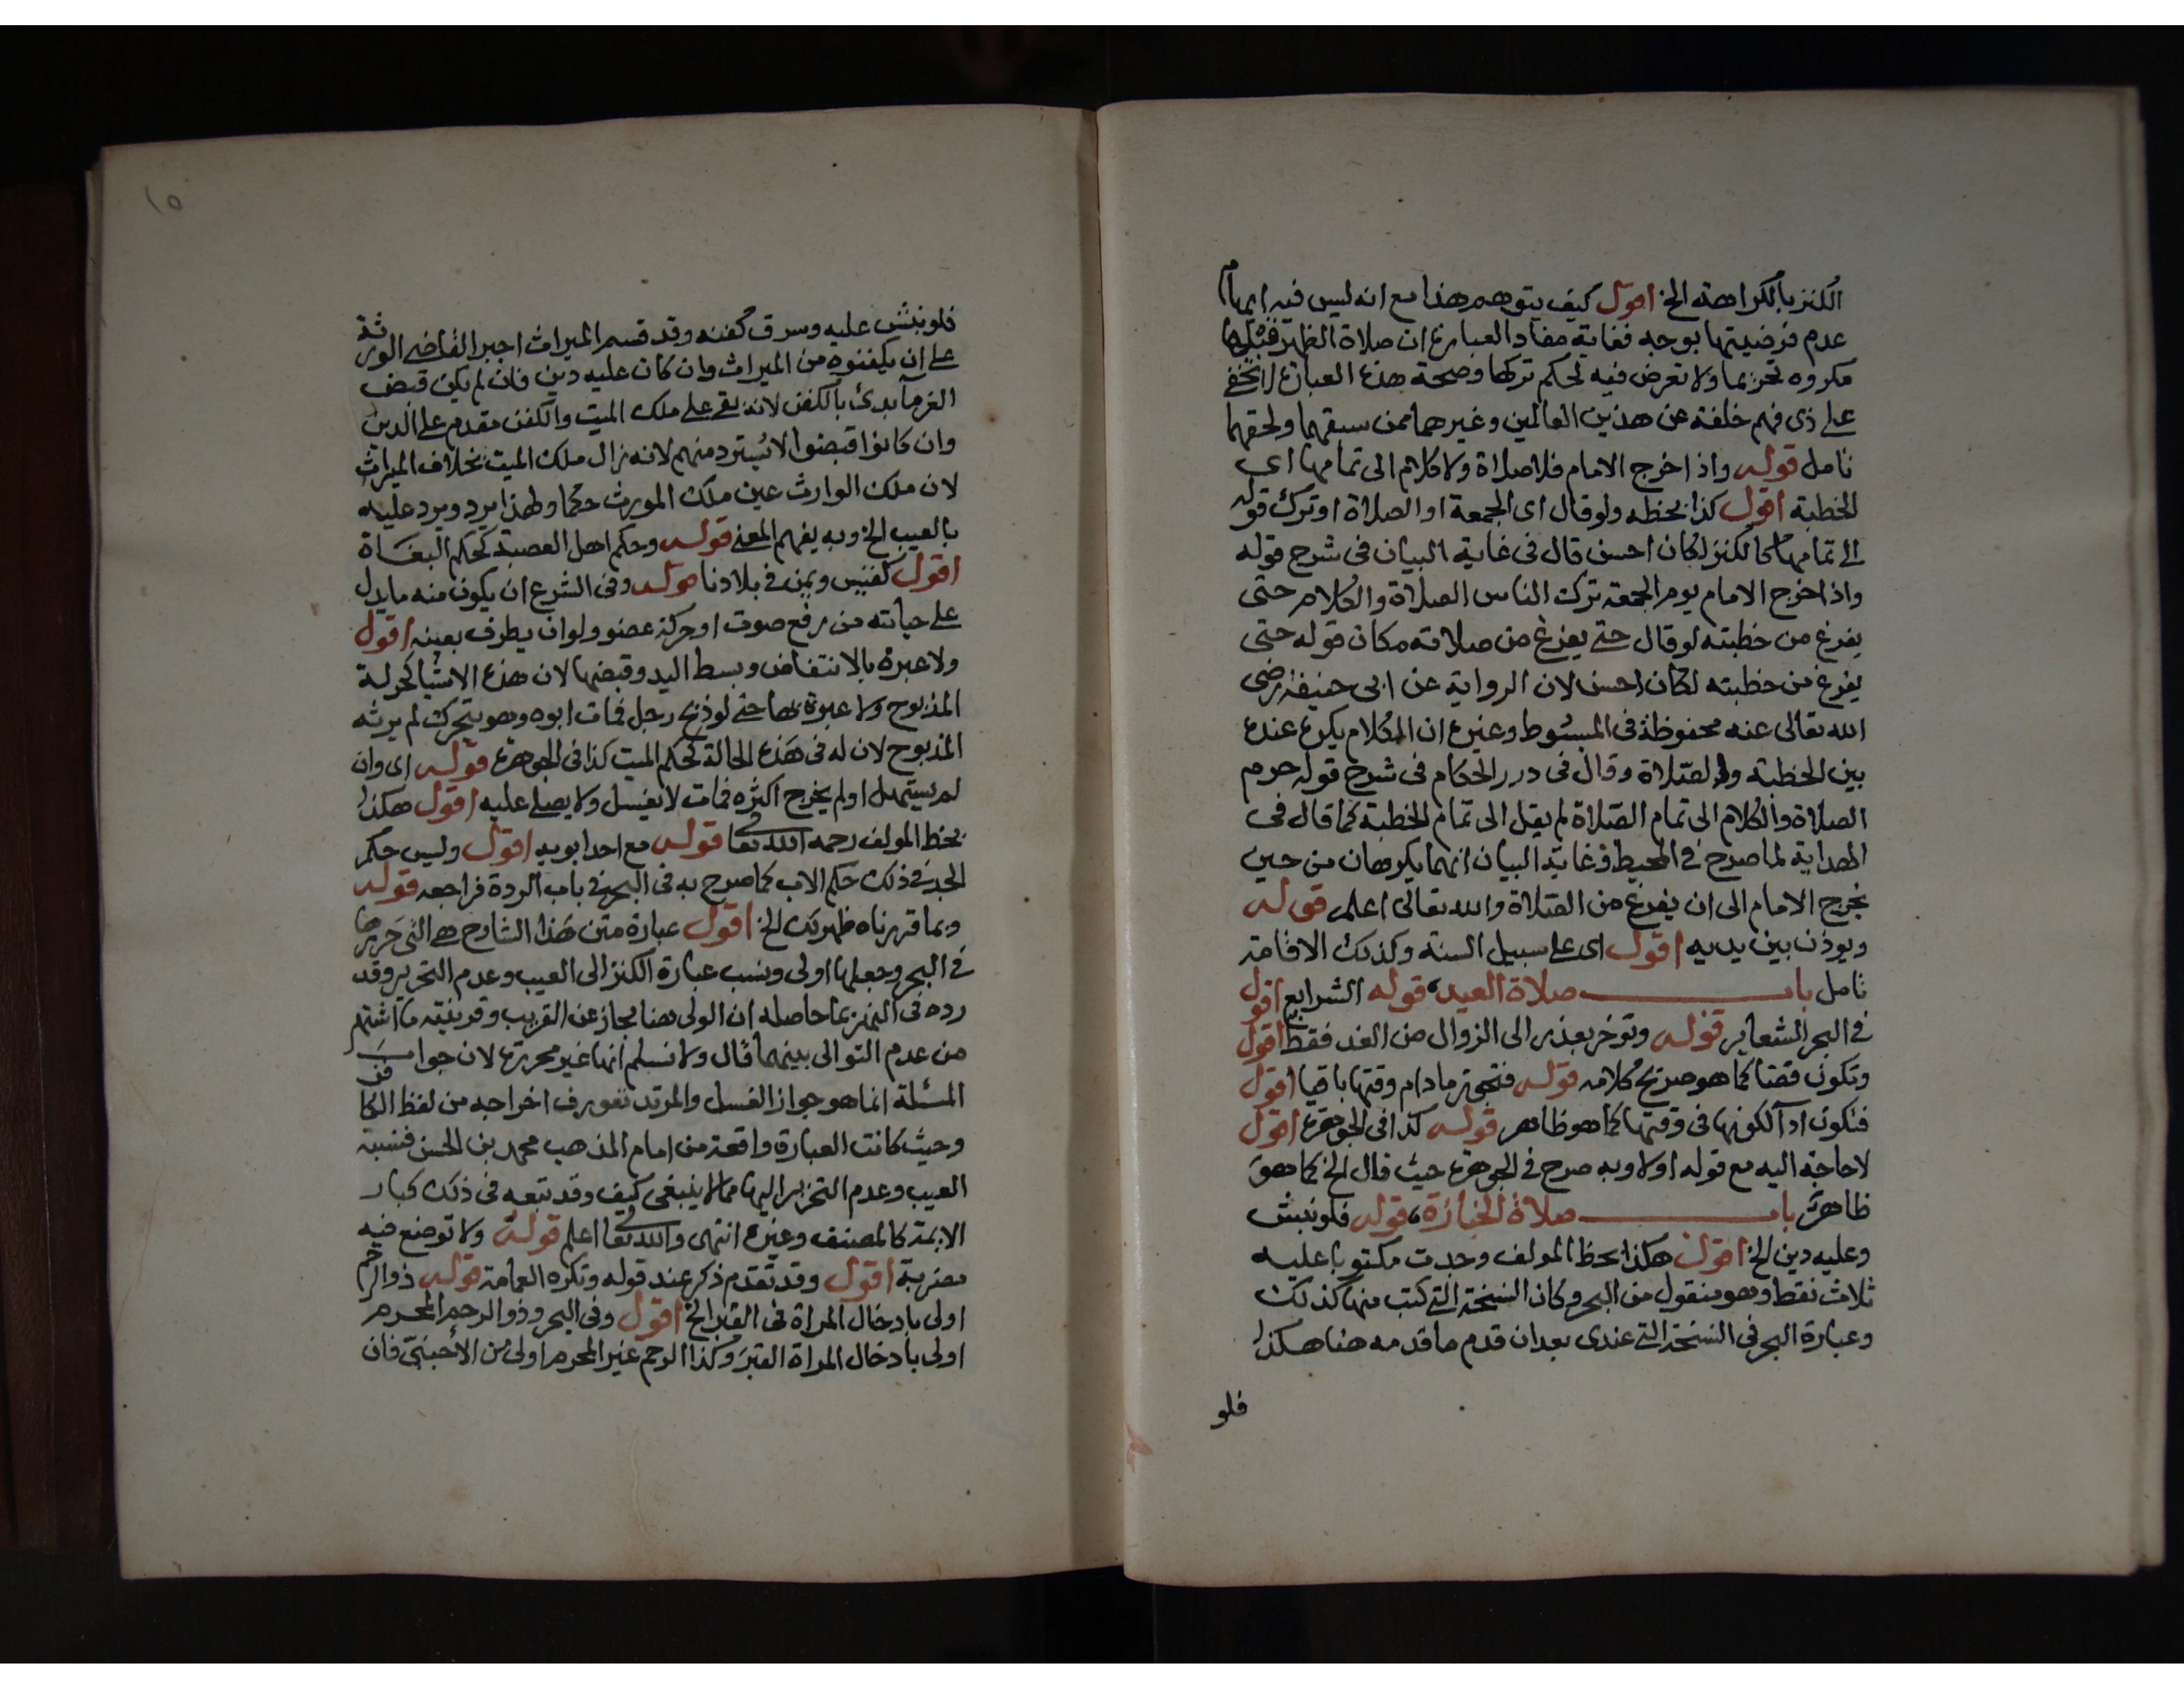 الكنز بالكراهة الخ اقول كيف يتوهم هذا مع انه ليس فيه ايهام
عدم فرضيتها بوجه فغاية مفاد العبارة ان صلاة الظهر قبلها
مكروه تحريما ولا تعرض فيه لحكم تركها وصحة هذه العبارة لا تخفى
على ذى فهم خلفة عن هذين العالمين وغيرهما ممن سبقهما ولحقهما
تامل قوله واذا خرج الامام فلا صلاة ولا كلام الى تمامها اى
الخطبة اقول كذا بخطه ولو قال اى الجمعة او الصلاة او ترك قوله
الى تمامها كالكنز لكان احسن قال فى غاية البيان فى شرح قوله
واذا خرج الامام يوم الجمعة ترك الناس الصلاة والكلام حتى
يفرغ من خطبته لو قال حتى يفرغ من صلاته مكان قوله حتى
يفرغ من خطبته لكان احسن لان الرواية عن ابى حنيفة رضى
الله تعالى عنه محفوظة فى المبسوط وغيره ان الكلام يكره عنده
بين الخطبة والصلاة وقال فى درر الحكام فى شرح قوله حرم
الصلاة والكلام الى تمام الصلاة لم يقل الى تمام الخطبة كما قال فى
الهداية لما صرح فى المحيط وغاية البيان انهما يكرهان من حين
يخرج الامام الى ان يفرغ من الصلاة والله تعالى اعلم قوله
ويوذن بين يديه اقول اى على سبيل السنة وكذلك الاقامة
تامل باب صلاة العيد، قوله الشرايع اقول
فى البحر الشعاير قوله وتوخر بعذر الى الزوال من الغد فقط اقول
وتكون قضا كما هو صريح كلامه قوله فتجوز مادام وقتها باقيا اقول
فتكون ادآ لكونها فى وقتها كما هو ظاهر قوله كذا فى الجوهرة اقول
لا حاجة اليه مع قوله اولا وبه صرح فى الجوهرة حيث قال الخ كما هو
ظاهر باب صلاة الجنازة، قوله فلو نبش
وعليه دين الخ اقول هكذا بخط المولف وجدت مكتوبا عليه
ثلاث نقط وهو منقول من البحر وكان النسخة التى كتب منها كذلك
وعبارة البحر فى النسخة التى عندى بعد ان قدم ما قدمه هنا هكذا
فلو
١٥
فلو نبش عليه وسرق كفنه وقد قسم الميراث اجبر القاضى الورثة
على ان يكفنوه من الميراث وان كان عليه دين فان لم يكن قبض
الغرمآ بدئ بالكفن لانه بقى على ملك الميت والكفن مقدم على الدين
وان كانوا قبضوا لا يسترد منهم لانه زال ملك الميت بخلاف الميراث
لان ملك الوارث عين ملك المورث حكما ولهذا يرد ويرد عليه
بالعيب الخ وبه يفهم المعنى قوله وحكم اهل العصبية كحكم البغاة
اقول كقيس ويمن فى بلادنا قوله وفى الشرع ان يكون منه ما يدل
على حياته من رفع صوت او حركة عضو ولو ان يطرف بعينه اقول
ولا عبرة بالانتفاض وبسط اليد وقبضها لان هذه الاشيا كحركة
المذبوح ولا عبرة بها حتى لو ذبح رجل فمات ابوه وهو يتحرك لم يرثه
المذبوح لان له فى هذه الحالة كحكم الميت كذا فى الجوهرة قوله اى وان
لم يستهل او لم يخرج اكثره فمات لا يغسل ولا يصلى عليه اقول هكذا
بخط المولف رحمه الله تعالى قوله مع احد ابويه اقول وليس حكم
الجد فى ذلك حكم الاب كما صرح به فى البحر فى باب الردة فراجعه قوله
وبما قررناه ظهر لك الخ اقول عبارة متن هذا الشارح هى التى حررها
فى البحر وجعلها اولى ونسب عبارة الكنز الى العيب وعدم التحرير وقد
رده فى النهر بما حاصله ان الولى هنا مجاز عن القريب وقرينته ما اشتهر
من عدم التوالى بينهما قال ولا نسلم انها غير محررة لان جواب
المسئلة انما هو جواز الغسل والمرتد تعورف اخراجه من لفظ الكافر
وحيث كانت العبارة واقعة من امام المذهب محمد بن الحسن فنسبة
العيب وعدم التحرير اليها مما لا ينبغى كيف وقد تبعه فى ذلك كبار
الايمة كالمصنف وغيره انتهى والله تعالى اعلم قوله ولا توضع فيه
مضربة اقول وقد تقدم ذكره عند قوله وتكره العمامة قوله ذو الرحم
اولى بادخال المراة فى القبر الخ اقول وفى البحر وذو الرحم المحرم
اولى بادخال المراة القبر وكذا الرحم غير المحرم اولى من الاجنبى فان